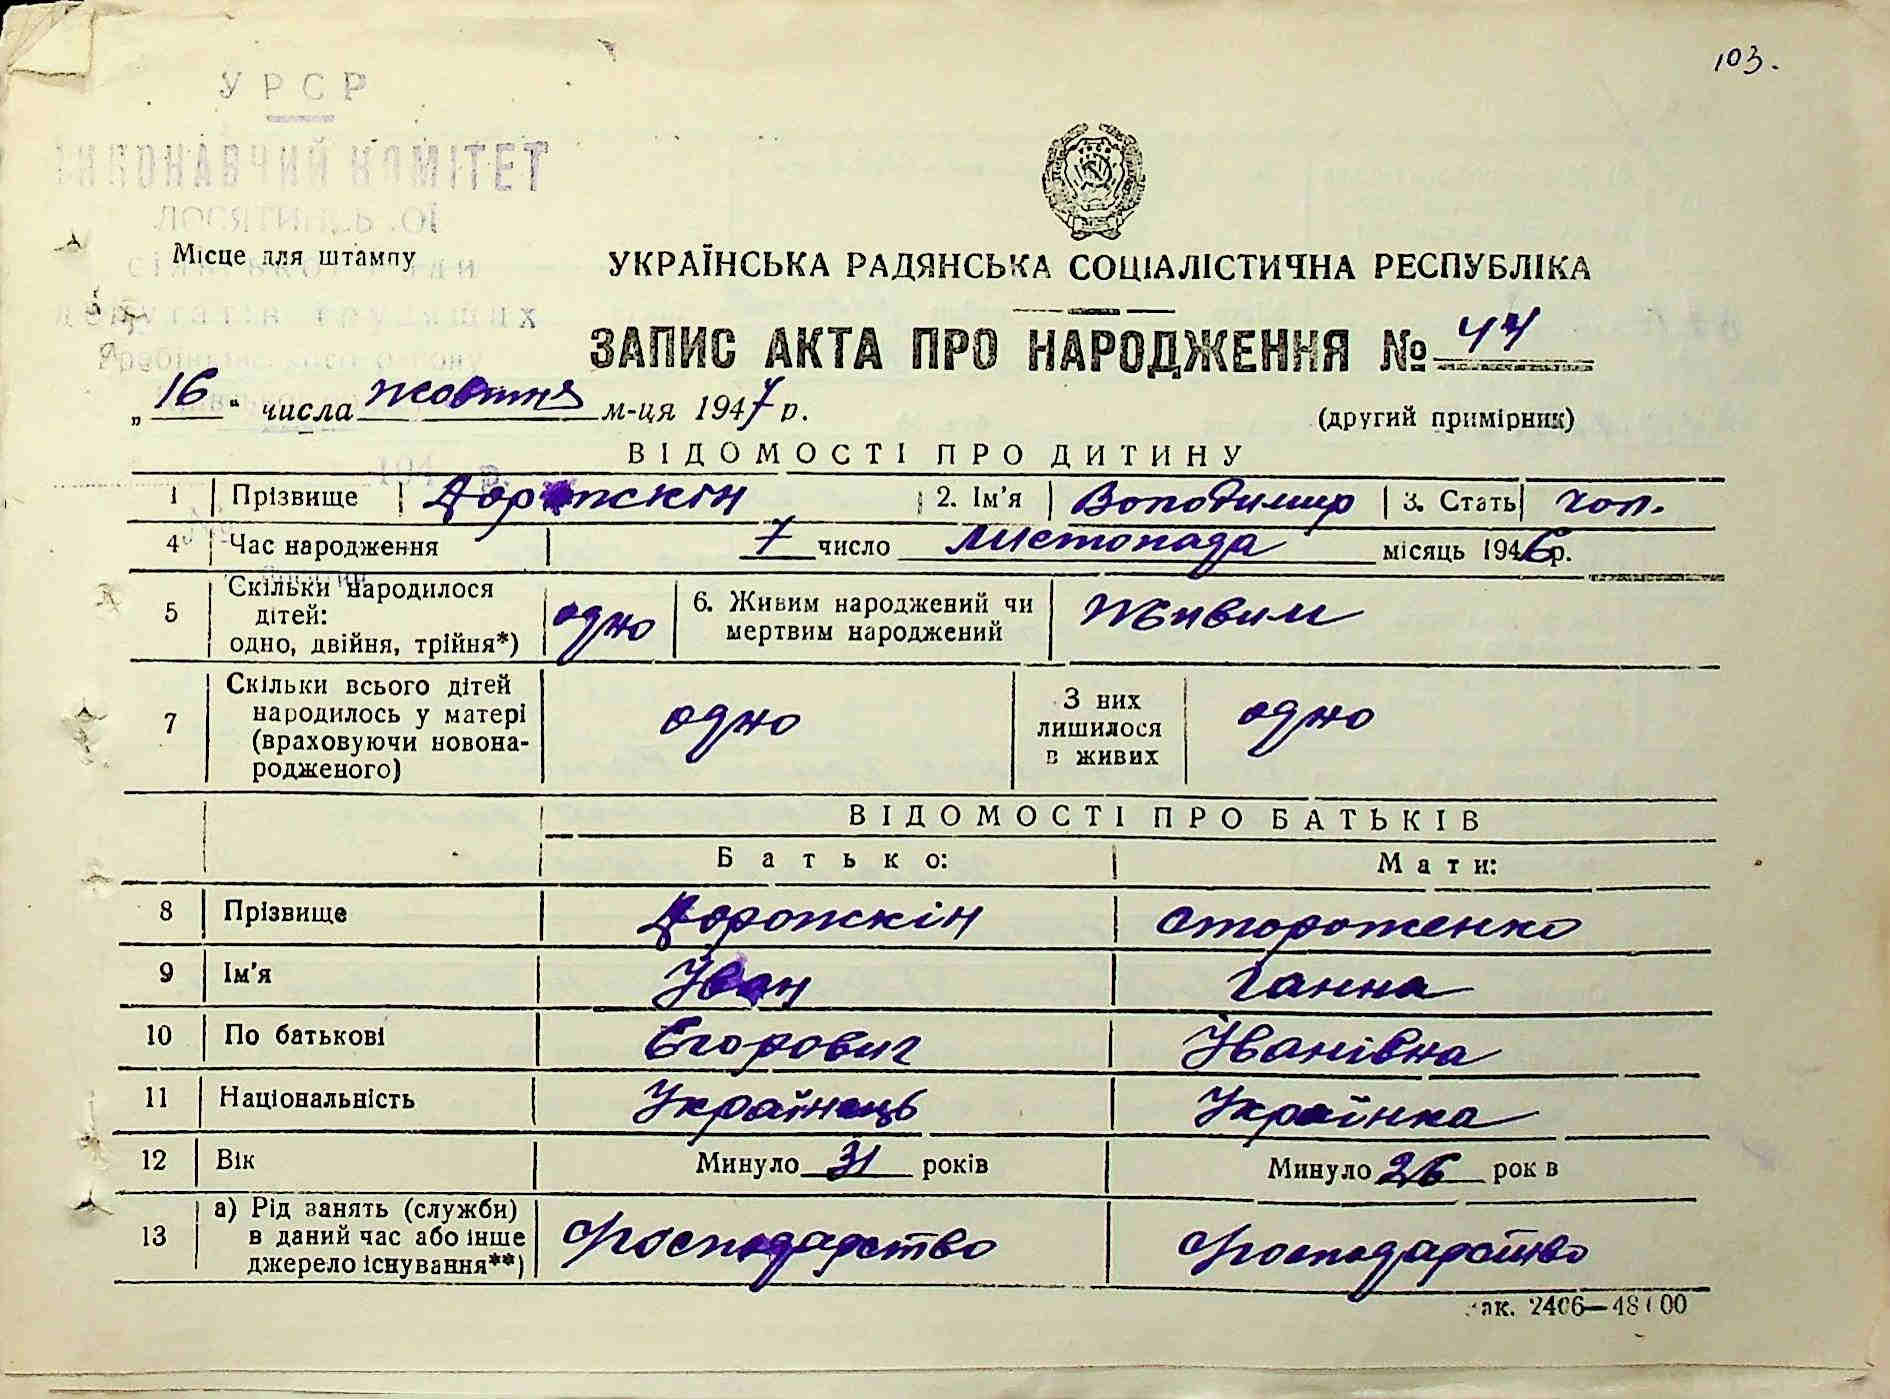 103.
УРСР
ВИКОНАВЧИЙ КОМІТЕТ
Місце для штампу
депутатів трудящих
УКРАЇНСЬКА РАДЯНСЬКА СОЦІАЛІСТИЧНА РЕСПУБЛІКА
ЗАПИС АКТА ПРО НАРОДЖЕННЯ № 44
„16“ числа жовтня м-ця 1947 р.
(другий примірник)
ВІДОМОСТІ ПРО ДИТИНУ
1 Прізвище Дорожкін 2. Ім'я Володимир 3. Стать чол.
4 Час народження 7 число Листопада місяць 1946 р.
5 Скільки народилося дітей: одно, двійня, трійня*) одно 6. Живим народжений чи мертвим народжений Живим
7 Скільки всього дітей народилось у матері (враховуючи новонародженого) одно З них лишилося в живих одно
ВІДОМОСТІ ПРО БАТЬКІВ
Батько: Мати:
8 Прізвище Дорожкін Стороженко
9 Ім'я Іван Ганна
10 По батькові Єгорович Іванівна
11 Національність Українець Українка
12 Вік Минуло 31 років Минуло 26 рок в
13 а) Рід занять (служби) в даний час або інше джерело існування**) господарство господарство
зак. 2406—48100